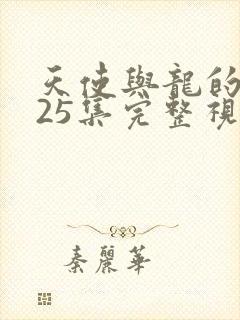 天使與龍的
25集完整視
秦麗華